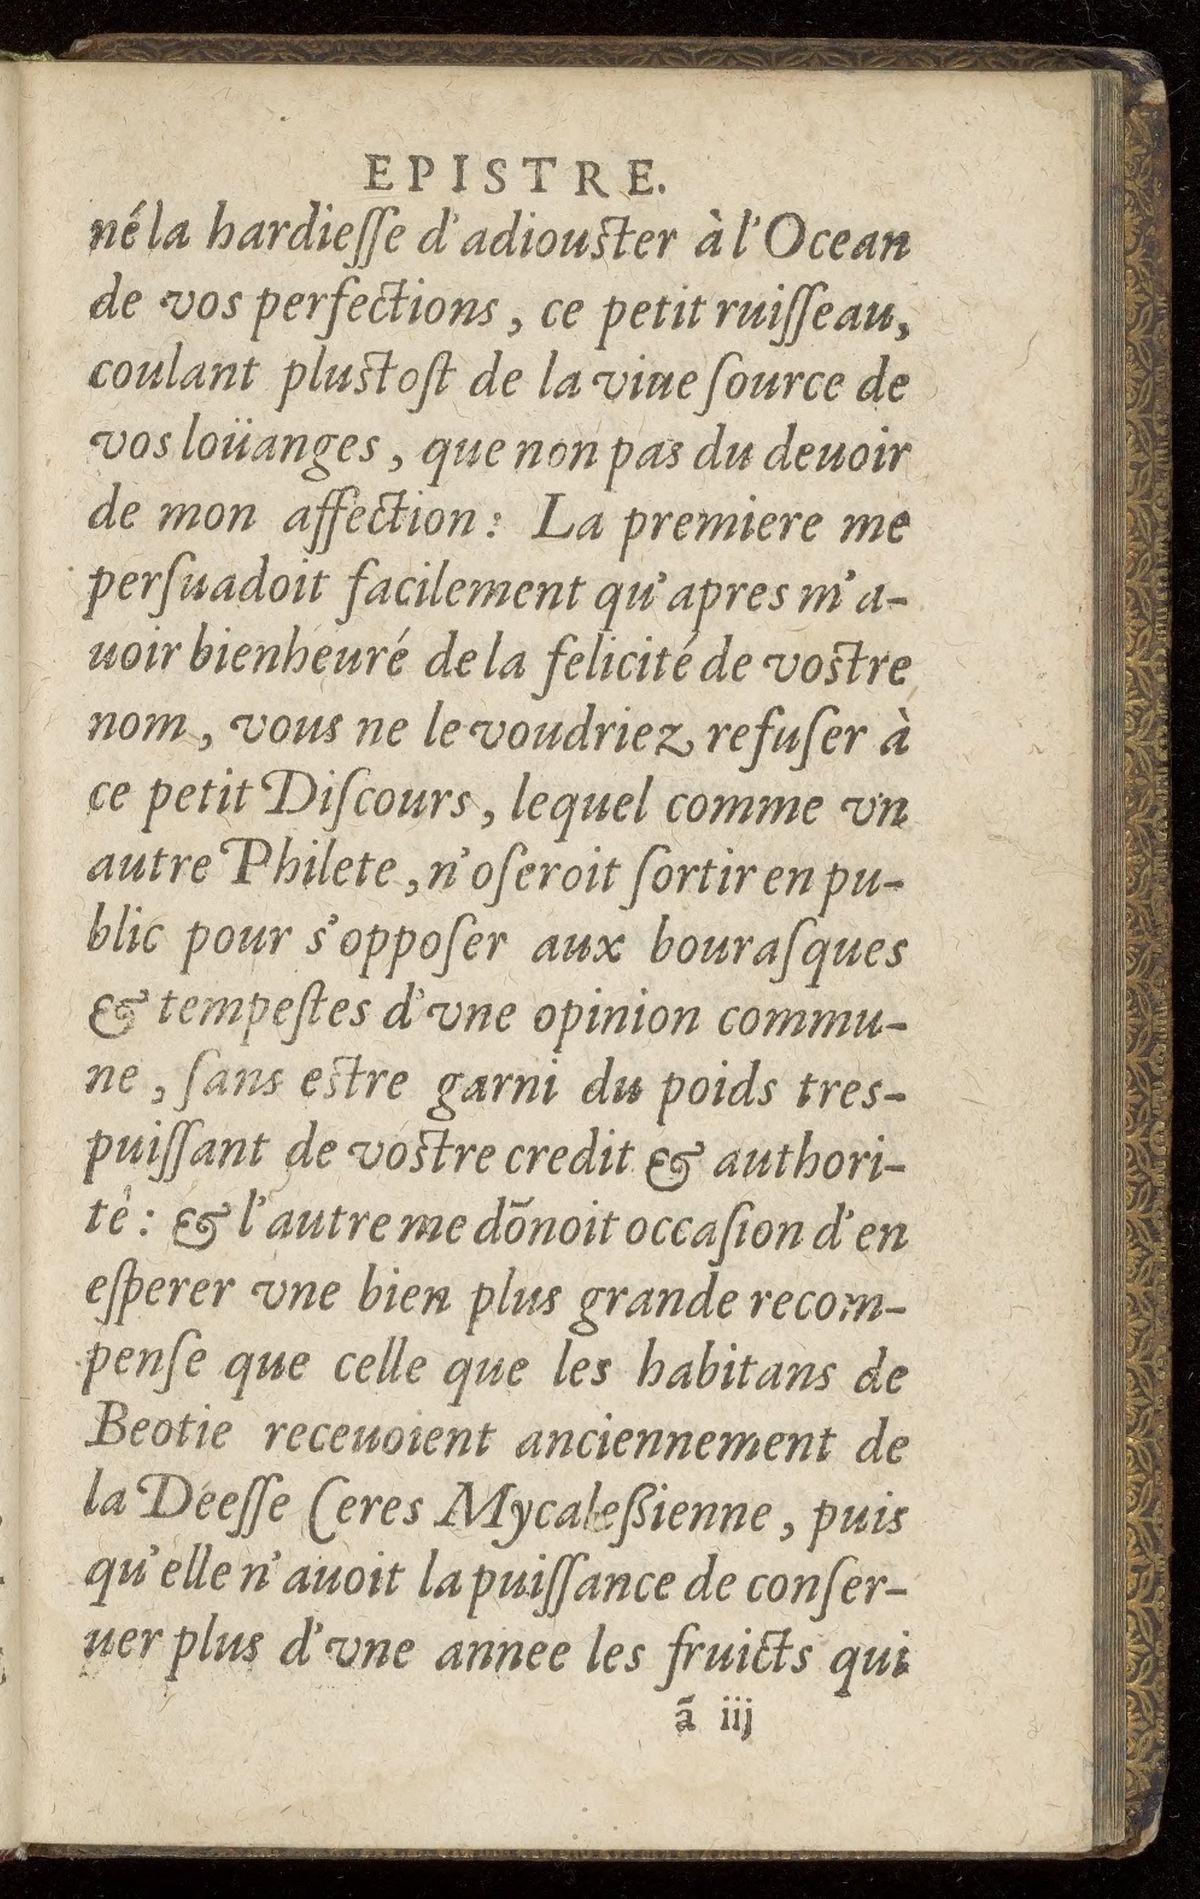 EPISTRE.
né la hardieſſe d'adiouſter à l'Ocean
de vos perfections, ce petit ruiſſeau,
coulant pluſtoſt de la viue ſource de
vos loüanges, que non pas du deuoir
de mon affection: La premiere me
perſuadoit facilement qu'apres m'a-
uoir bienheuré de la felicité de voſtre
nom, vous ne le voudriez refuſer à
ce petit Diſcours, lequel comme vn
autre Philete, n'oſeroit ſortir en pu-
blic pour s'oppoſer aux bouraſques
& tempeſtes d'vne opinion commu-
ne, ſans eſtre garni du poids tres-
puiſſant de voſtre credit & authori-
té: & l'autre me dõnoit occaſion d'en
eſperer vne bien plus grande recom-
penſe que celle que les habitans de
Beotie receuoient anciennement de
la Deeſſe Ceres Mycaleßienne, puis
qu'elle n'auoit la puiſſance de conſer-
uer plus d'vne annee les fruicts qui
ã iij